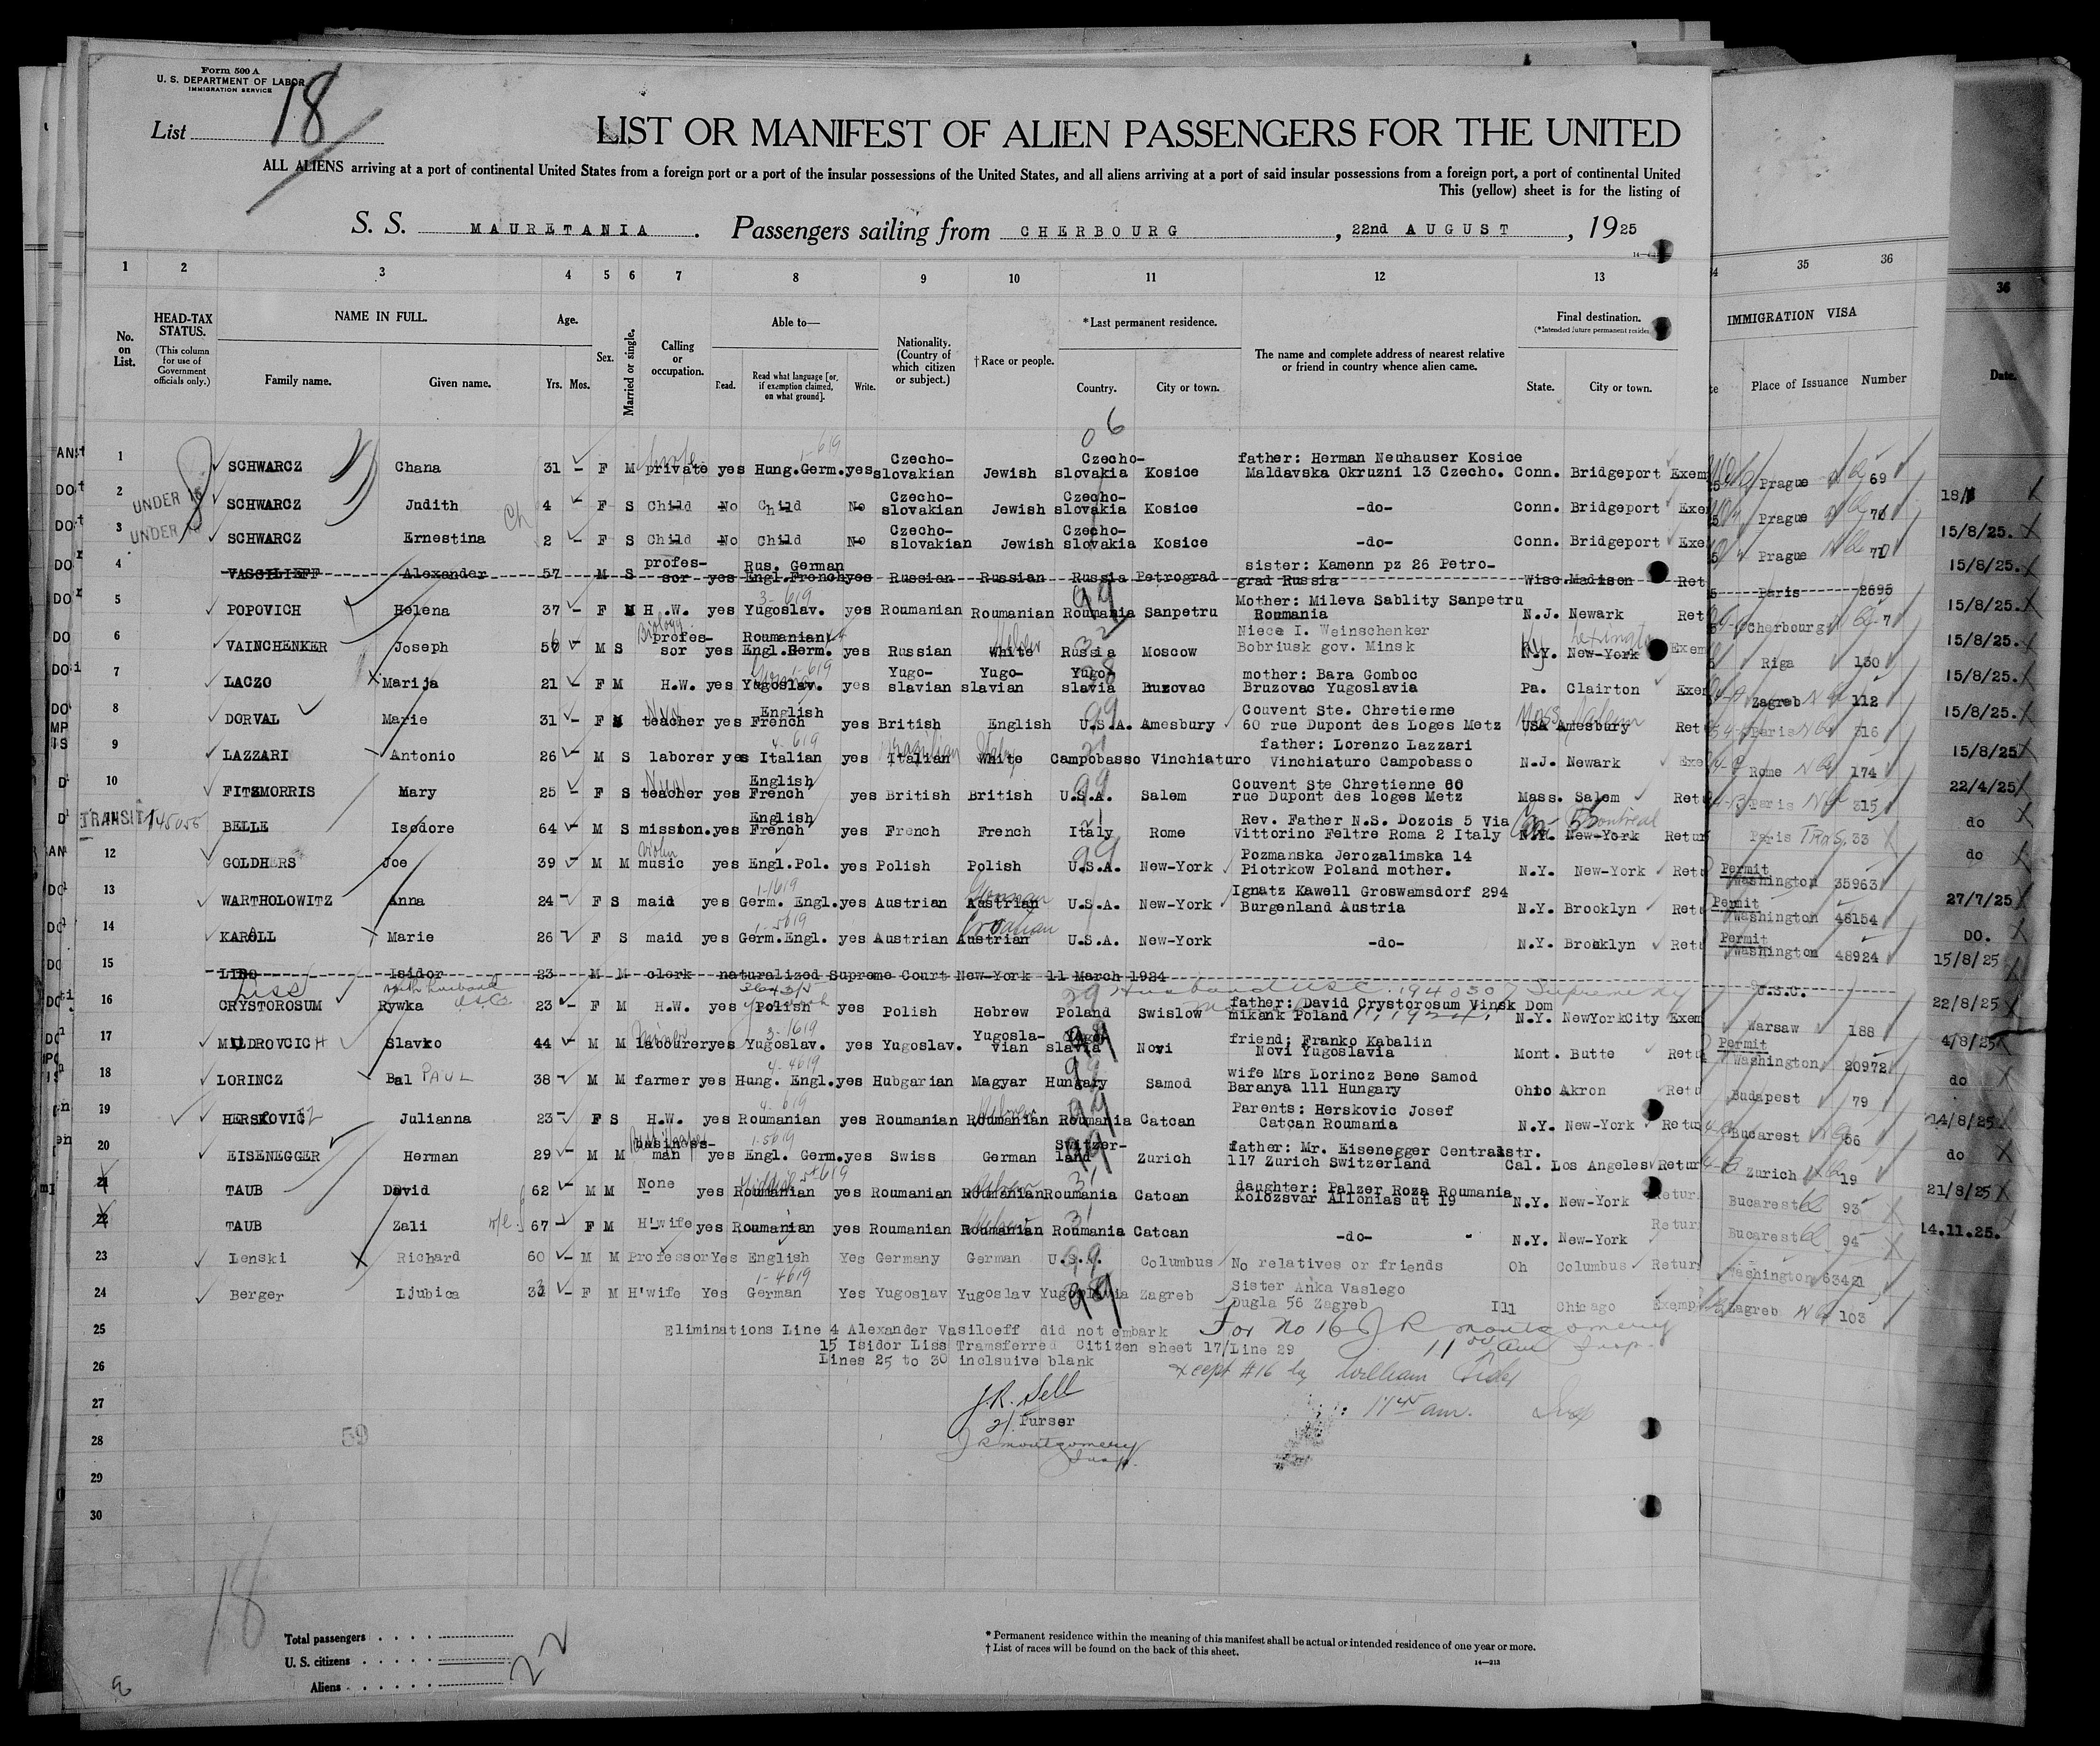 Form 500 A
U. S. DEPARTMENT OF LABOR
IMMIGRATION SERVICE
List 18
LIST OR MANIFEST OF ALIEN PASSENGERS FOR THE UNITED
ALL ALIENS arriving at a port of continental United States from a foreign port or a port of the insular possessions of the United States, and all aliens arriving at a port of said insular possessions from a foreign port, a port of continental United
This (yellow) sheet is for the listing of
S. S. MAURETANIA. Passengers sailing from CHERBOURG, 22nd AUGUST, 1925
1 2 3 4 5 6 7 8 9 10 11 12 13 35 36
36
No. on List.
HEAD-TAX STATUS.
(This column for use of Government officials only.)
NAME IN FULL.
Family name. Given name.
Age.
Yrs. Mos.
Sex.
Married or single.
Calling or occupation.
Able to—
Read. Read what language [or, if exemption claimed, on what ground]. Write.
Nationality. (Country of which citizen or subject.)
†Race or people.
*Last permanent residence.
Country. City or town.
The name and complete address of nearest relative or friend in country whence alien came.
Final destination.
(*Intended future permanent residen
State. City or town.
IMMIGRATION VISA
Place of Issuance Number
Date.
1 SCHWARCZ Chana 31 - F M private yes Hung.Germ. yes Czecho-slovakian Jewish Czecho-slovakia Kosice father: Herman Neuhauser Kosice Maldavska Okruzni 13 Czecho. Conn. Bridgeport Exem Prague 69
2 UNDER 16 SCHWARCZ Judith 4 - F S Child No Child No Czecho-slovakian Jewish Czecho-slovakia Kosice -do- Conn. Bridgeport Exe Prague 70
3 UNDER 16 SCHWARCZ Ernestina 2 - F S Child No Child No Czecho-slovakian Jewish Czecho-slovakia Kosice -do- Conn. Bridgeport Exe Prague 15/8/25.
4 VASSILIEFF Alexander 57 M S profes-sor yes Rus. German Engl.French yes Russian Russian Russia Petrograd sister: Kamenn pz 26 Petro-grad Russia Wisc. Madison Ret Paris 2695 15/8/25.
5 POPOVICH Helena 37 - F M H.W. yes Yugoslav. yes Roumanian Roumanian Roumania Sanpetru Mother: Mileva Sablity Sanpetru Roumania N.J. Newark Ret Cherbourg 7 15/8/25.
6 VAINCHENKER Joseph 56 - M S Biology profes-sor yes Roumanian Engl.Germ. yes Russian White Hebrew Russia Moscow Niece I. Weinschenker Bobriusk gov. Minsk N.Y. New-York Ky Lexington Exem Riga 130 15/8/25.
7 LACZO Marija 21 - F M H.W. yes Yugoslav. yes Yugo-slavian Yugo-slavian Yugo-slavia Bruzovac mother: Bara Gomboc Bruzovac Yugoslavia Pa. Clairton Exe Zagreb 112 15/8/25.
8 DORVAL Marie 31 - F teacher Nun yes English French yes British English U.S.A. Amesbury Couvent Ste. Chretienne 60 rue Dupont des Loges Metz USA Amesbury Mass Salem Ret Paris 316 15/8/25.
9 LAZZARI Antonio 26 - M S laborer yes Italian yes Italian White Campobasso Vinchiaturo father: Lorenzo Lazzari Vinchiaturo Campobasso N.J. Newark Exe Rome 174 15/8/25
10 FITZMORRIS Mary 25 - F S teacher Nun yes English French yes British British U.S.A. Salem Couvent Ste Chretienne 60 rue Dupont des loges Metz Mass. Salem Ret Paris 315 22/4/25
TRANSIT BELLE Isodore 64 - M S mission. yes English French yes French French Italy Rome Rev. Father N.S. Dozois 5 Via Vittorino Feltre Roma 2 Italy N.Y. New-York Montreal Retur Paris Trans. 33 do
12 GOLDHERS Joe 39 - M M violin music yes Engl.Pol. yes Polish Polish U.S.A. New-York Pozmanska Jerozalimska 14 Piotrkow Poland mother. N.Y. New-York Retu Permit Washington 35963 do
13 WARTHOLOWITZ Anna 24 - F S maid yes Germ. Engl. yes Austrian Austrian German U.S.A. New-York Ignatz Kawell Groswamsdorf 294 Burgenland Austria N.Y. Brooklyn Retu Permit Washington 48154 27/7/25
14 KAROLL Marie 26 - F S maid yes Germ.Engl. yes Austrian Austrian Croatian U.S.A. New-York -do- N.Y. Brooklyn Retu Permit Washington 48924 DO.
15 Isidor 23 M M clerk naturalized Supreme Court New-York 11 March 1924 U.S.C. 15/8/25
16 LISS CRYSTOROSUM with husband U.S.C. Rywka 23 - F M H.W. yes Polish yes Polish Hebrew Poland Swislow Husband USC. 1940307 Supreme NY father: David Crystorosum Vinsk Dom mikank Poland 11, 1924, N.Y. NewYorkCity Exem Warsaw 188 22/8/25
17 MILDROVCICH Slavko 44 - M M labourer Miner yes Yugoslav. yes Yugoslav. Yugosla-vian Yugo-slavia Novi friend: Franko Kabalin Novi Yugoslavia Mont. Butte Retu Permit Washington 20972 4/8/25
18 LORINCZ Bal PAUL 38 - M M farmer yes Hung. Engl. yes Hubgarian Magyar Hungary Samod wife Mrs Lorincz Bene Samod Baranya 111 Hungary Ohio Akron Retu Budapest 79 do
19 HERSKOVIC Julianna 23 - F S H.W. yes Roumanian yes Roumanian Roumanian Hebrew Roumania Catcan Parents: Herskovic Josef Catcan Roumania N.Y. New-York Retu Bucarest 56 14/8/25
20 EISENEGGER Herman 29 - M M business-man yes Engl. Germ. yes Swiss German Switzer-land Zurich father: Mr. Eisenegger Centralstr. 117 Zurich Switzerland Cal. Los Angeles Retur Zurich 19 do
21 TAUB David 62 - M M None - yes Roumanian Yiddish yes Roumanian Roumanian Hebrew Roumania Catcan daughter: Palzer Roza Roumania Kolozsvar Allonias ut 19 N.Y. New-York Retur Bucarest 93 21/8/25
22 TAUB Zali 67 - F M H'wife yes Roumanian yes Roumanian Roumanian Hebrew Roumania Catcan -do- N.Y. New-York Retur Bucarest 94 14.11.25.
23 Lenski Richard 60 - M M Professor Yes English Yes Germany German U.S.A. Columbus No relatives or friends Oh Columbus Retur Washington 63421
24 Berger Ljubica 33 - F M H'wife Yes German Yes Yugoslav Yugoslav Yugoslavia Zagreb Sister Anka Vaslego Dugla 56 Zagreb Ill Chicago Exemp Zagreb 103
25 Eliminations Line 4 Alexander Vasiloeff did not embark For No 16 J R Montgomery
15 Isidor Liss Tramsferred Citizen sheet 17/Line 29 11 00 am Insp.
26 Lines 25 to 30 inclsuive blank except #16 by William
27 J.R. Sell
Purser 11 45 am.
28 J R Montgomery
Insp.
59
29
30
18
Total passengers
U. S. citizens
Aliens
22
* Permanent residence within the meaning of this manifest shall be actual or intended residence of one year or more.
† List of races will be found on the back of this sheet.
14—213